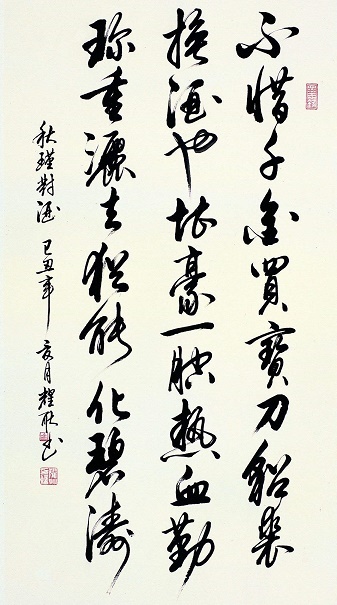 不惜千金買寶刀貂裘
換酒也堪豪一腔熱血勤
珍重灑去猶能化碧濤
秋瑾對酒 己丑年 月耀书